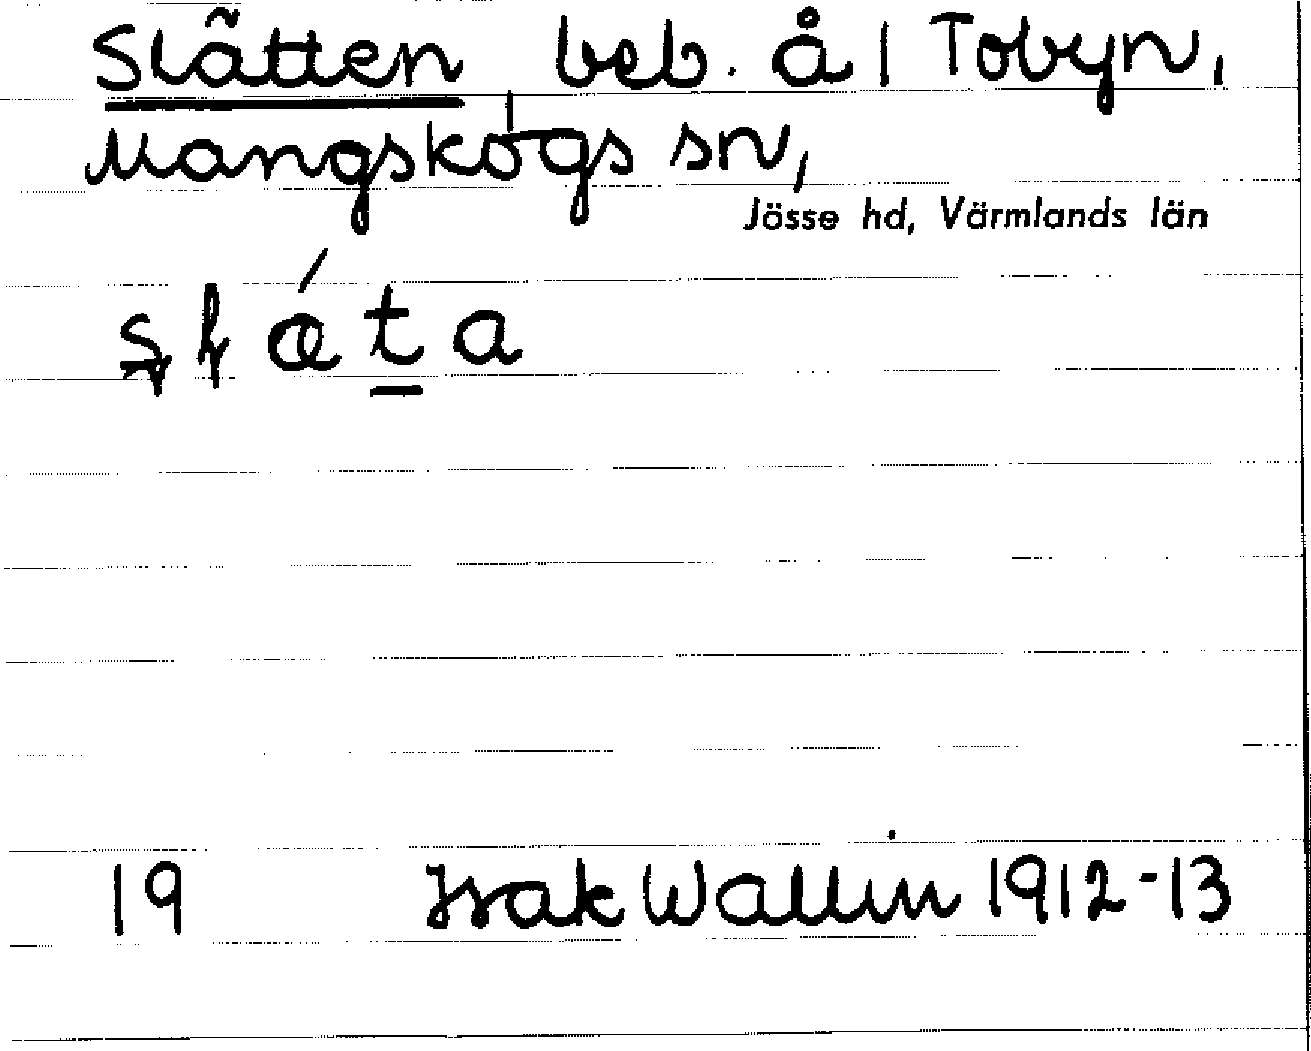 Slätten, beb. å 1 Tobyn,
Mangskogs sn,
Jösse hd, Värmlands län
19 Isak Wallin 1912-13